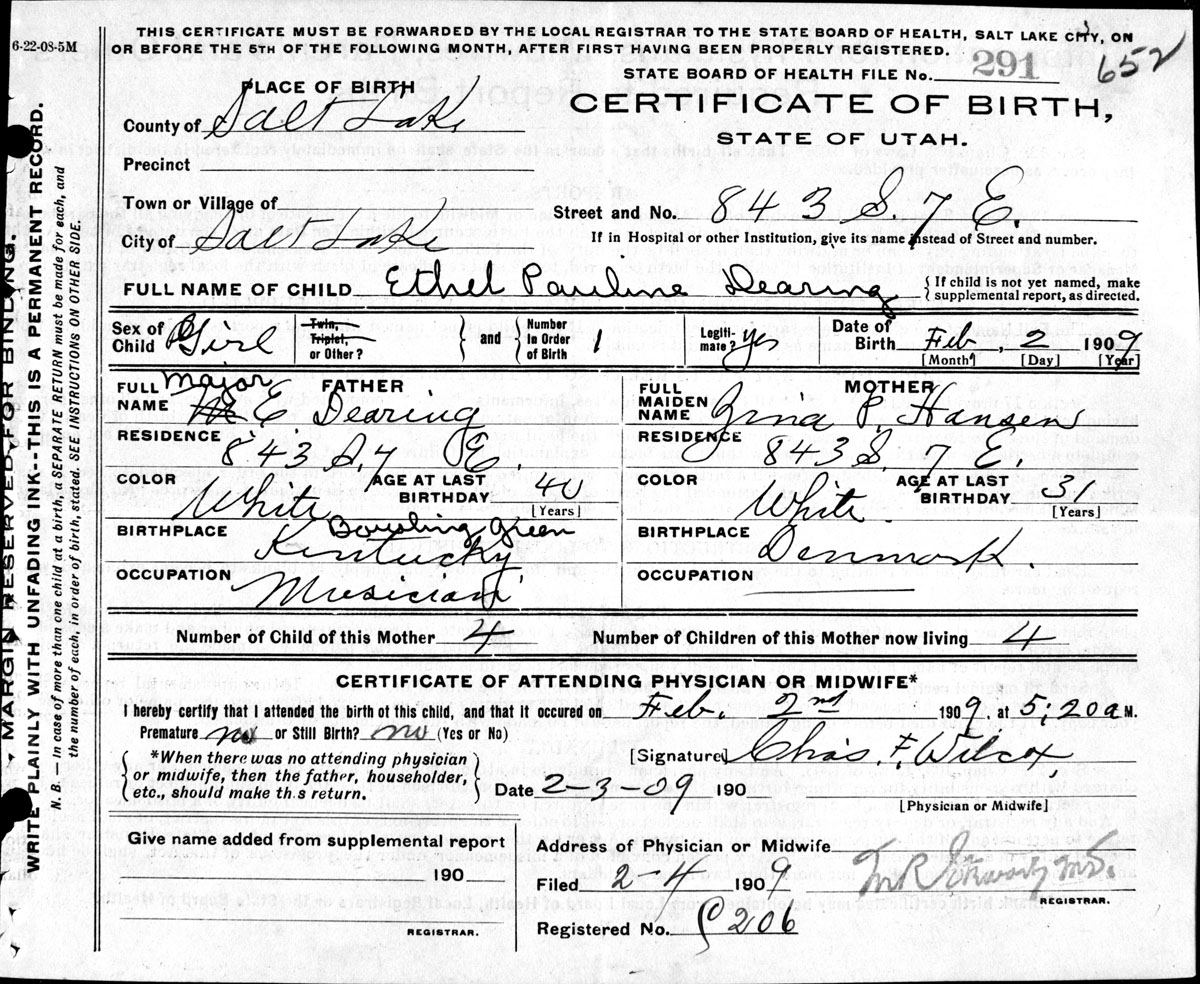 6-22-08-5M
THIS CERTIFICATE MUST BE FORWARDED BY THE LOCAL REGISTRAR TO THE STATE BOARD OF HEALTH, SALT LAKE CITY, ON
OR BEFORE THE 5TH OF THE FOLLOWING MONTH, AFTER FIRST HAVING BEEN PROPERLY REGISTERED.
STATE BOARD OF HEALTH FILE No. 291 652
PLACE OF BIRTH
CERTIFICATE OF BIRTH,
STATE OF UTAH.
County of Salt Lake
Precinct
Town or Village of
Street and No. 843 S. 7 E.
City of Salt Lake
If in Hospital or other Institution, give its name instead of Street and number.
FULL NAME OF CHILD Ethel Pauline Dearing
{ If child is not yet named, make
supplemental report, as directed.
Sex of Child Girl
Twin, Triplet, or Other? } and { Number In Order of Birth 1
Legitimate? yes
Date of Birth Feb, 2 1909
[Month] [Day] [Year]
FATHER
FULL NAME Major E. Dearing
RESIDENCE 843 S. 7 E.
COLOR White
AGE AT LAST BIRTHDAY 40
[Years]
BIRTHPLACE Bowling Green
Kentucky
OCCUPATION Musician
MOTHER
FULL MAIDEN NAME P. Hansen
RESIDENCE 843 S. 7 E.
COLOR White.
AGE AT LAST BIRTHDAY 31
[Years]
BIRTHPLACE Denmark.
OCCUPATION
Number of Child of this Mother 4 Number of Children of this Mother now living 4
CERTIFICATE OF ATTENDING PHYSICIAN OR MIDWIFE*
I hereby certify that I attended the birth of this child, and that it occured on Feb. 2nd 1909. at 5:20 a M.
Premature no or Still Birth? no (Yes or No)
{ *When there was no attending physician
or midwife, then the father, householder,
etc., should make th.s return. }
[Signature] Chas. F. Wilcox,
Date 2-3-09 190
[Physician or Midwife]
Give name added from supplemental report
190
REGISTRAR.
Address of Physician or Midwife
Filed 2-4 1909
M.D.
REGISTRAR.
Registered No. 206
MARGIN RESERVED FOR BINDING.
WRITE PLAINLY WITH UNFADING INK--THIS IS A PERMANENT RECORD.
N. B.—In case of more than one child at a birth a SEPARATE RETURN must be made for each, and
the number of each, in order of birth, stated. SEE INSTRUCTIONS ON OTHER SIDE.